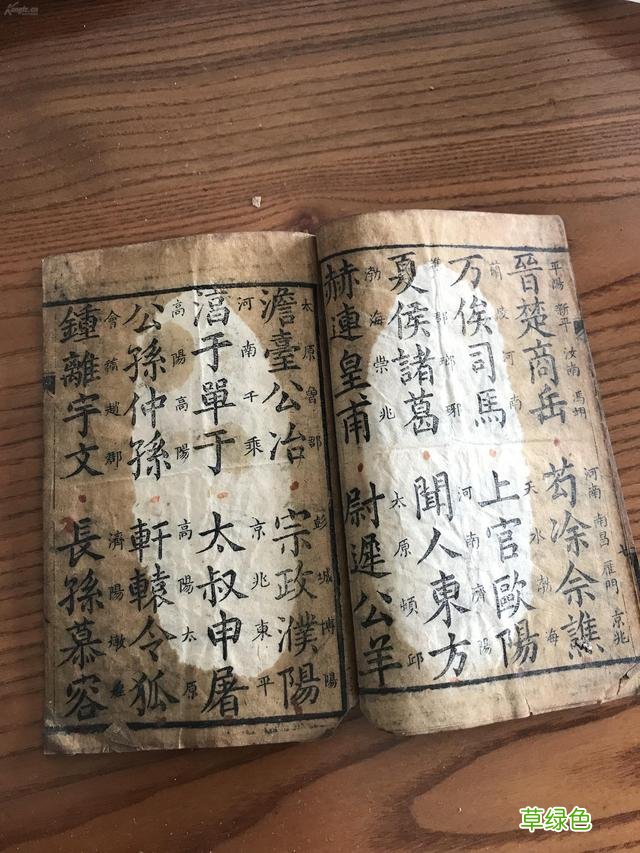 平陽 新平 汝南 馮翊 河南 南昌 雁門 京兆
晉楚商岳 芶凃佘譙
蘭陵 河南 天水 渤海
万俟司馬 上官歐陽
譙郡 瑯琊 河南 濟陽
夏侯諸葛 聞人東方
渤海 崇兆 太原 頓邱
赫連皇甫 尉遲公羊
太原 魯郡 彭城 博陽
澹臺公冶 宗政濮陽
河南 千乘 京兆 東平
于單于 太叔申屠
高陽 高陽 高陽 太原
公孫仲孫 軒轅令狐
會稽 趙郡 濟陽 燉
鍾離宇文 長孫慕容
草绿色